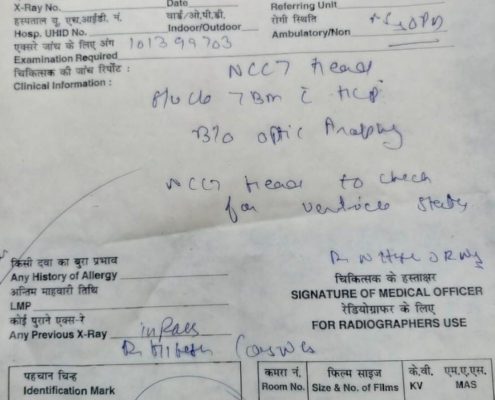 X-Ray No. Date Referring Unit
हस्पताल यू. एच.आईडी. नं. वार्ड/ओ.पी.डी. रोगी स्थिति
Hosp. UHID No. Indoor/Outdoor Ambulatory/Non
एक्सरे जांच के लिए अंग 101399703
Examination Required
चिकित्सक की जांच रिपोर्ट : NCCT Head
Clinical Information :
TBM C HCP
B/o optic Atrophy
NCCT Head to check
for ventricle status
किसी दवा का बुरा प्रभाव
Any History of Allergy चिकित्सक के हस्ताक्षर
अन्तिम माहवारी तिथि SIGNATURE OF MEDICAL OFFICER
LMP रेडियोग्राफर के लिए
कोई पुराने एक्स-रे FOR RADIOGRAPHERS USE
Any Previous X-Ray in Pacs
पहचान चिन्ह कमरा नं. फिल्म साइज के.वी. एम.ए.एस.
Identification Mark Room No. Size & No. of Films KV MAS